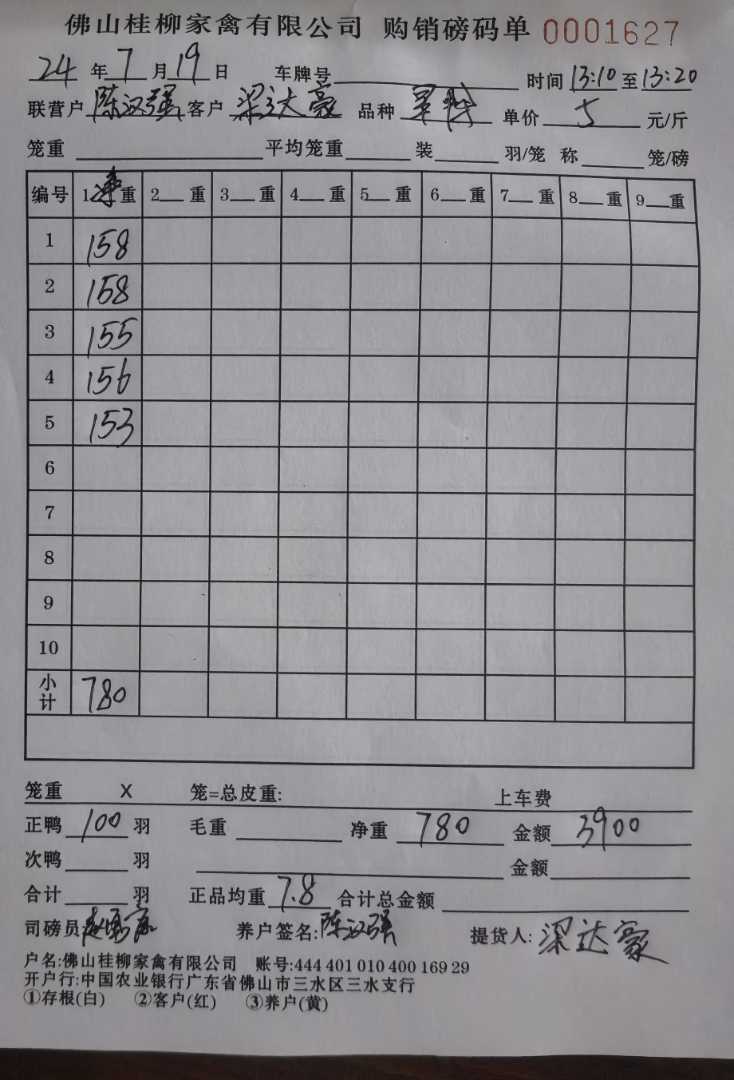 佛山桂柳家禽有限公司 购销磅码单 0001627
24 年 7 月 19 日 车牌号 时间 13:10 至 13:20
联营户 陈汉强 客户 梁达豪 品种 单价 5 元/斤
笼重 平均笼重 装 羽/笼 称 笼/磅
编号 1 重 2 重 3 重 4 重 5 重 6 重 7 重 8 重 9 重
1 158
2 158
3 155
4 156
5 153
6
7
8
9
10
小计 780
笼重 X 笼=总皮重: 上车费
正鸭 100 羽 毛重 净重 780 金额 3900
次鸭 羽 金额
合计 羽 正品均重 7.8 合计总金额
司磅员 养户签名: 陈汉强 提货人: 梁达豪
户名:佛山桂柳家禽有限公司 账号:444 401 010 400 169 29
开户行:中国农业银行广东省佛山市三水区三水支行
①存根(白) ②客户(红) ③养户(黄)